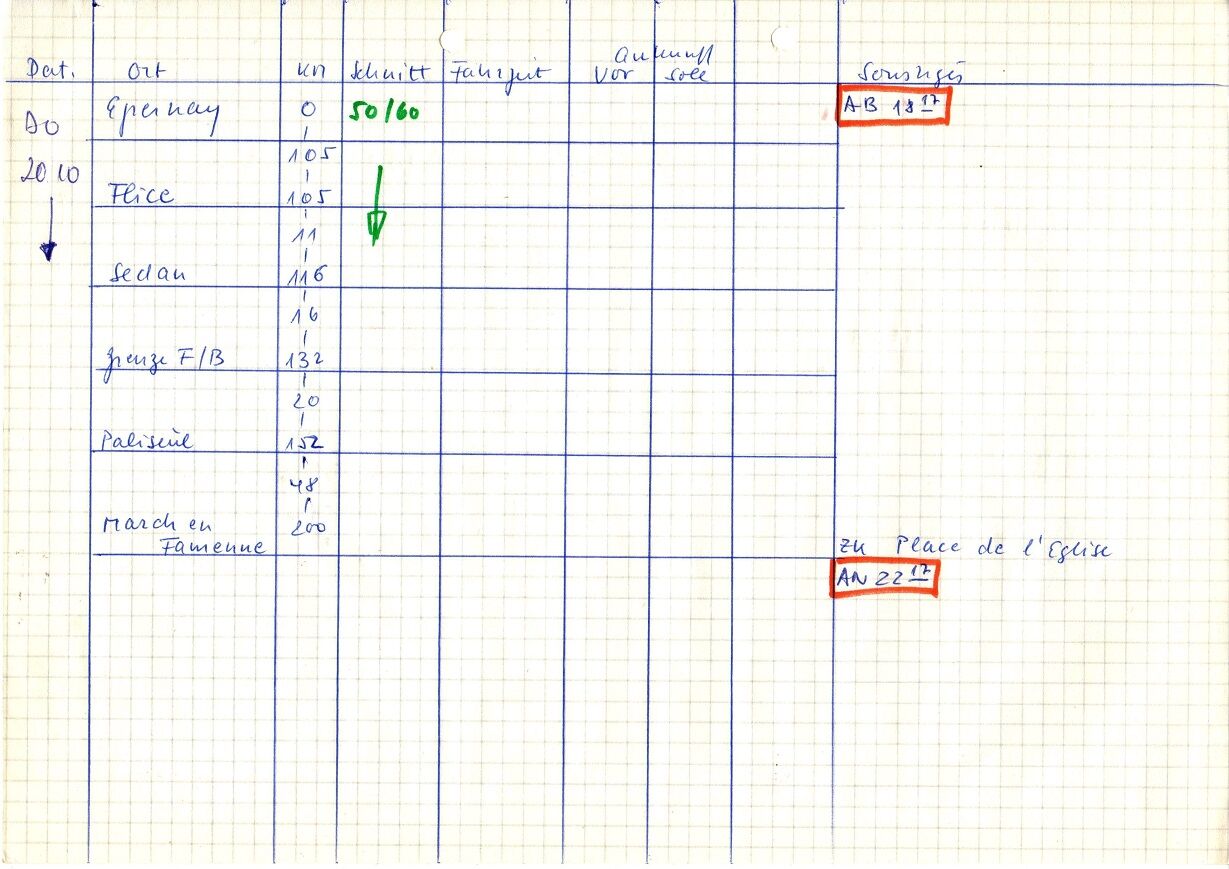 Ankunft
Dat. Ort KM Schnitt Fahrzeit Vor Soll Sonstiges
Do Epernay 0 50/60 AB 18 17
105
20 10 Flice 105
11
Sedan 116
16
Grenze F/B 132
20
Paliseul 152
48
March en 200
Famenne zu Place de l'Eglise
AN 22 17